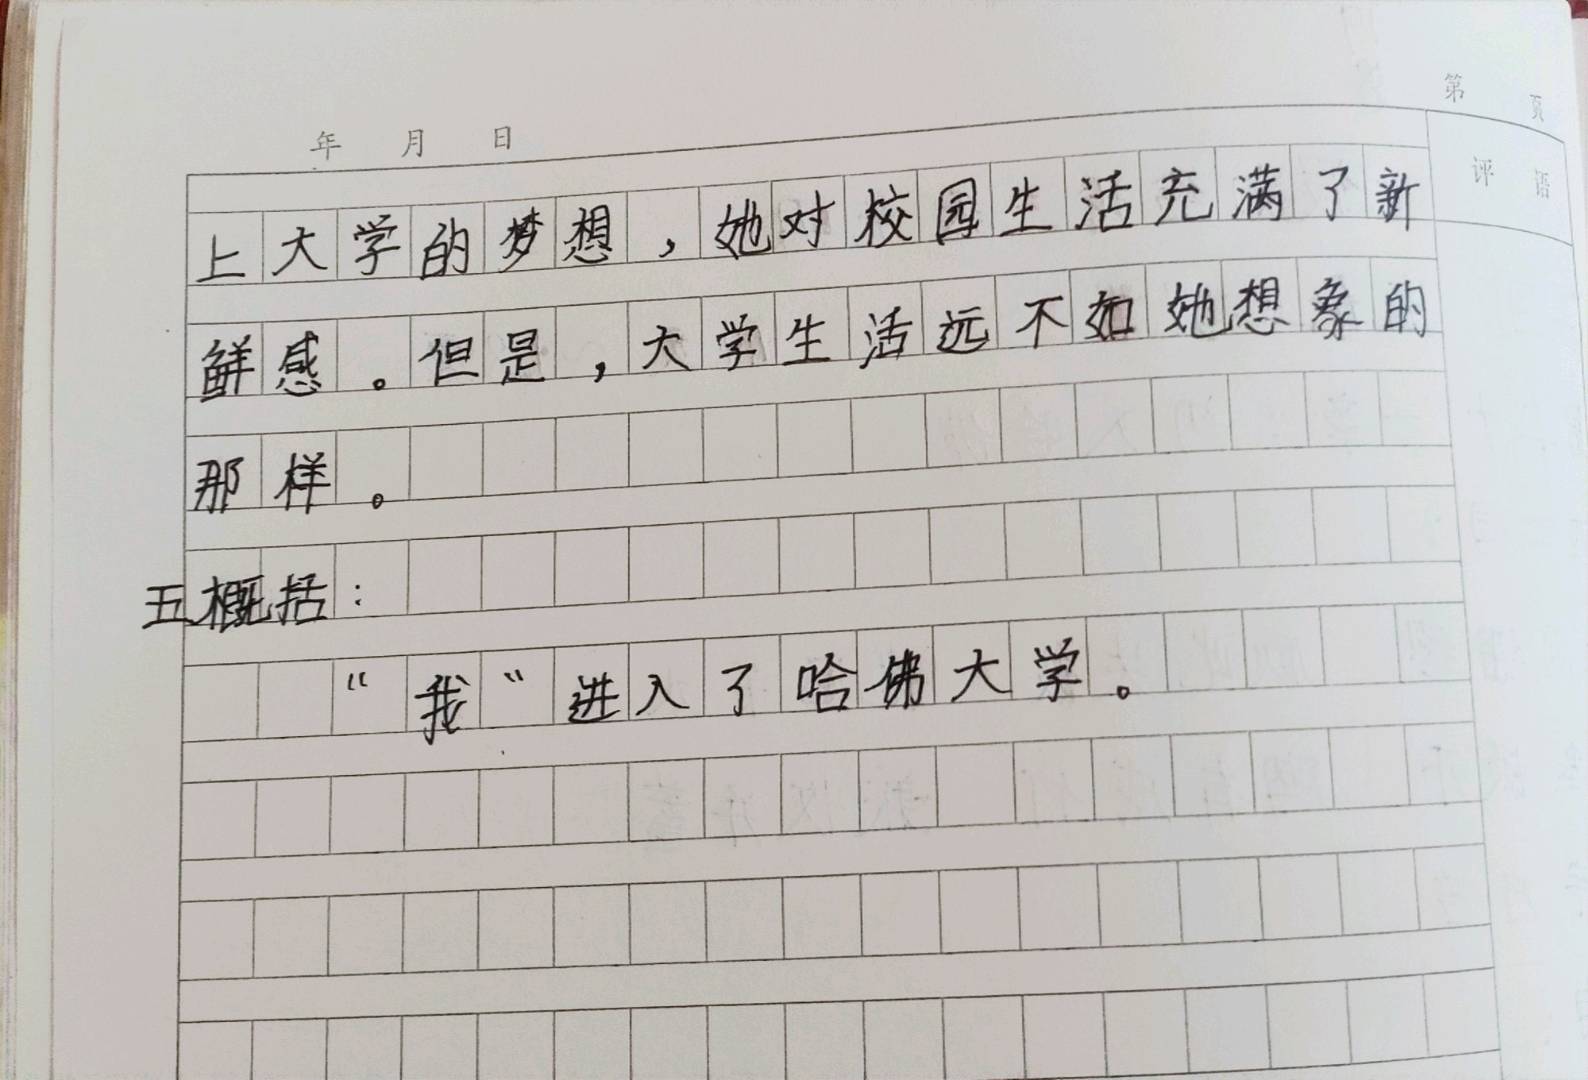 第 页
年 月 日
评 语
上大学的梦想，她对校园生活充满了新
鲜感。但是，大学生活远不如她想象的
那样。
五概括：
“我“进入了哈佛大学。